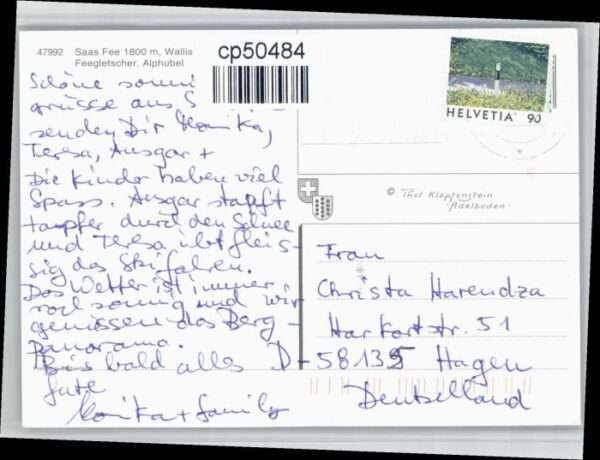 47992 Saas Fee 1800 m, Wallis
Feegletscher, Alphubel
cp50484
HELVETIA 90
Schöne sonni
grüsse aus S
senden Dir Monika,
Teresa, Ausgar +
Die Kinder haben viel
Spass. Ausgar stapft
tapfer durch den Schnee
und Teresa übt fleis-
sig das Skifahren.
Das Wetter ist immer
sonnig und wir
geniessen das Berg-
Panorama.
Bis bald alles
Gute
Monika + family
© Thof Kloptenstein
Adelboden
Frau
Christa Harendza
Harkortstr. 51
D-58135 Hagen
Deutschland